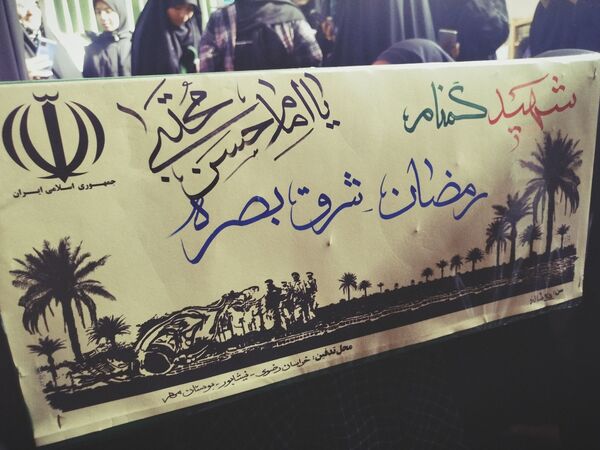 شهید گمنام
یا امام حسن مجتبی
جمهوری اسلامی ایران
رمضان شرق بصره
محل تدفین: خراسان رضوی - نیشابور - بوستان